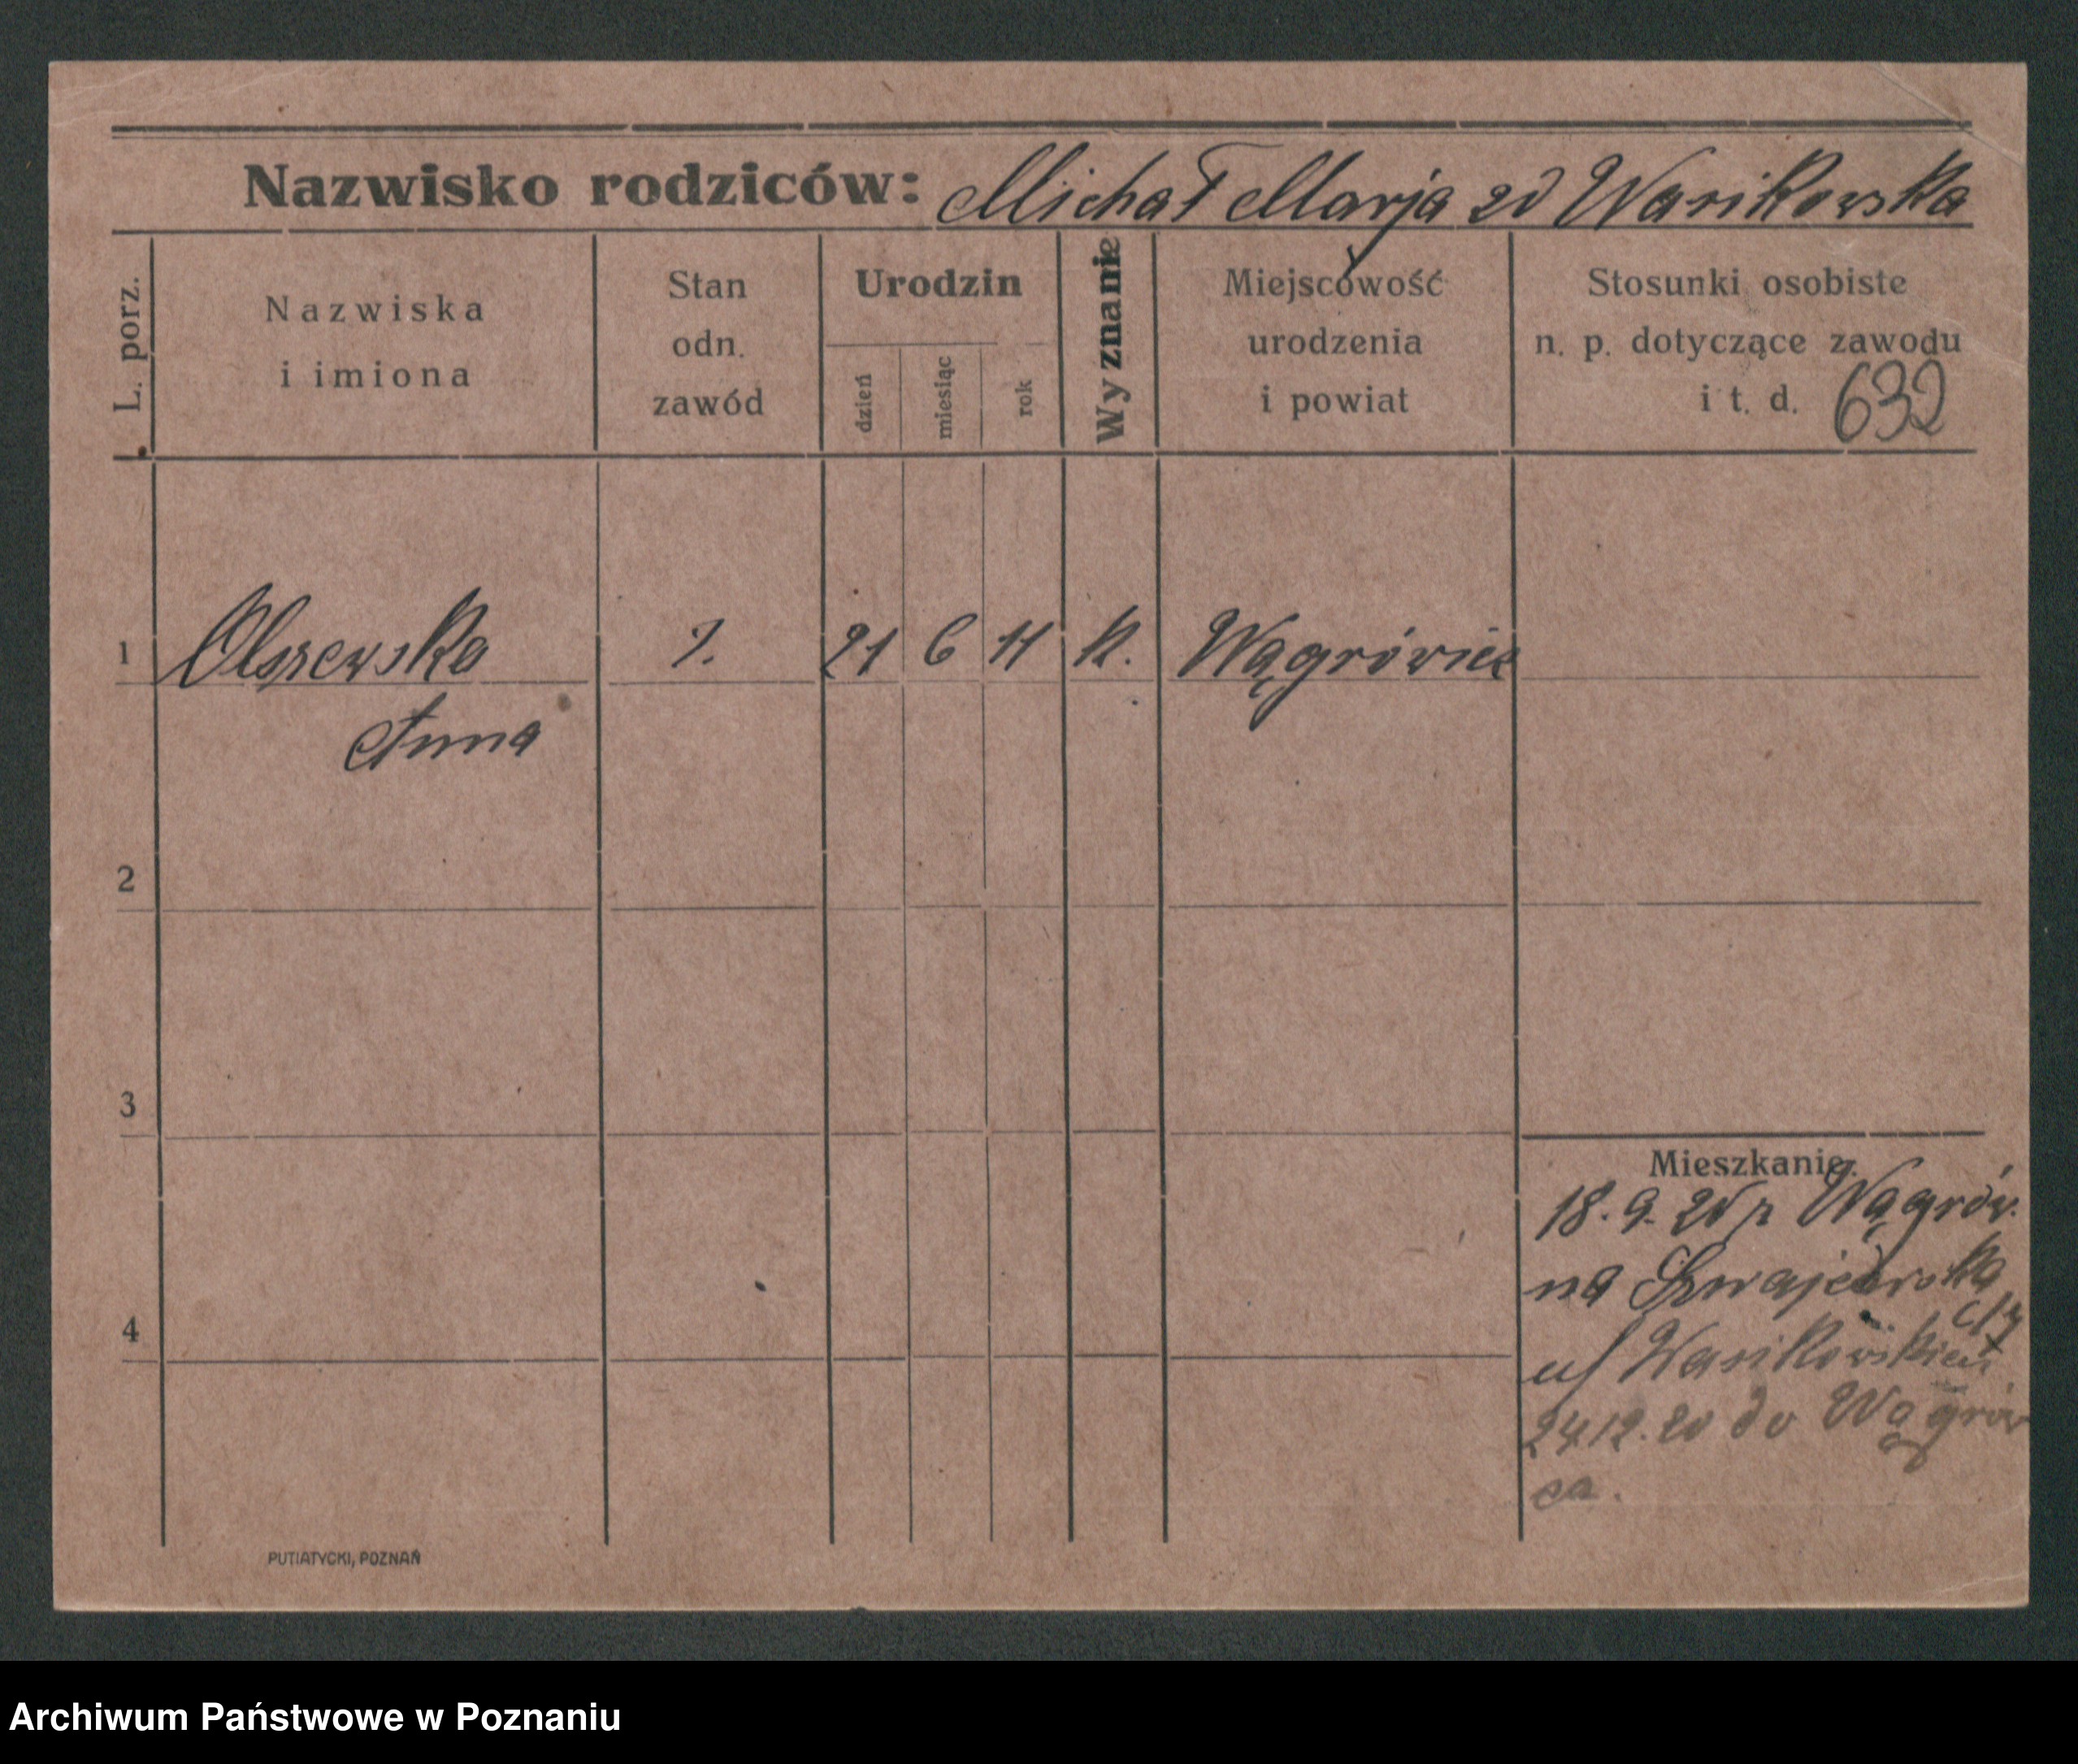 Nazwisko rodziców: Michał Marja zd Wasikowska
L. porz.
Nazwiska
i imiona
Stan
odn.
zawód
Urodzin
dzień
miesiąc
rok
Wyznanie
Miejscowość
urodzenia
i powiat
Stosunki osobiste
n. p. dotyczące zawodu
i t. d. 632
1 Olszewska 21 6 11 k. Wągrówiec
Anna
2
3
Mieszkanie.
18. 9. Wągrów.
na
4
24.12.20 do Wągrów
ca.
PUTIATYCKI, POZNAŃ
Archiwum Państwowe w Poznaniu